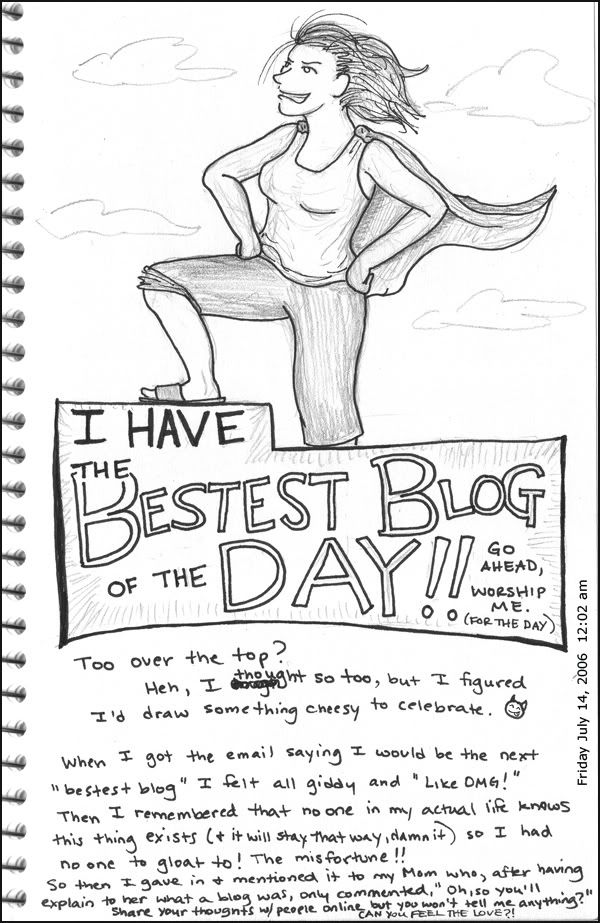 I HAVE
THE
BESTEST BLOG
OF THE DAY!!
GO
AHEAD,
WORSHIP
ME.
(FOR THE DAY)
Too over the top?
Heh, I thought so too, but I figured
I'd draw something cheesy to celebrate.
When I got the email saying I would be the next
"bestest blog" I felt all giddy and "Like OMG!"
Then I remembered that no one in my actual life knows
this thing exists (+ it will stay that way, damnit) so I had
no one to gloat to! The misfortune!!
So then I gave in + mentioned it to my Mom who, after having
explain to her what a blog was, only commented, "Oh, so you'll
share your thoughts w/ people online but you won't tell me anything?"
CAN YOU FEEL THE LOVE?!
Friday July 14, 2006 12:02 am